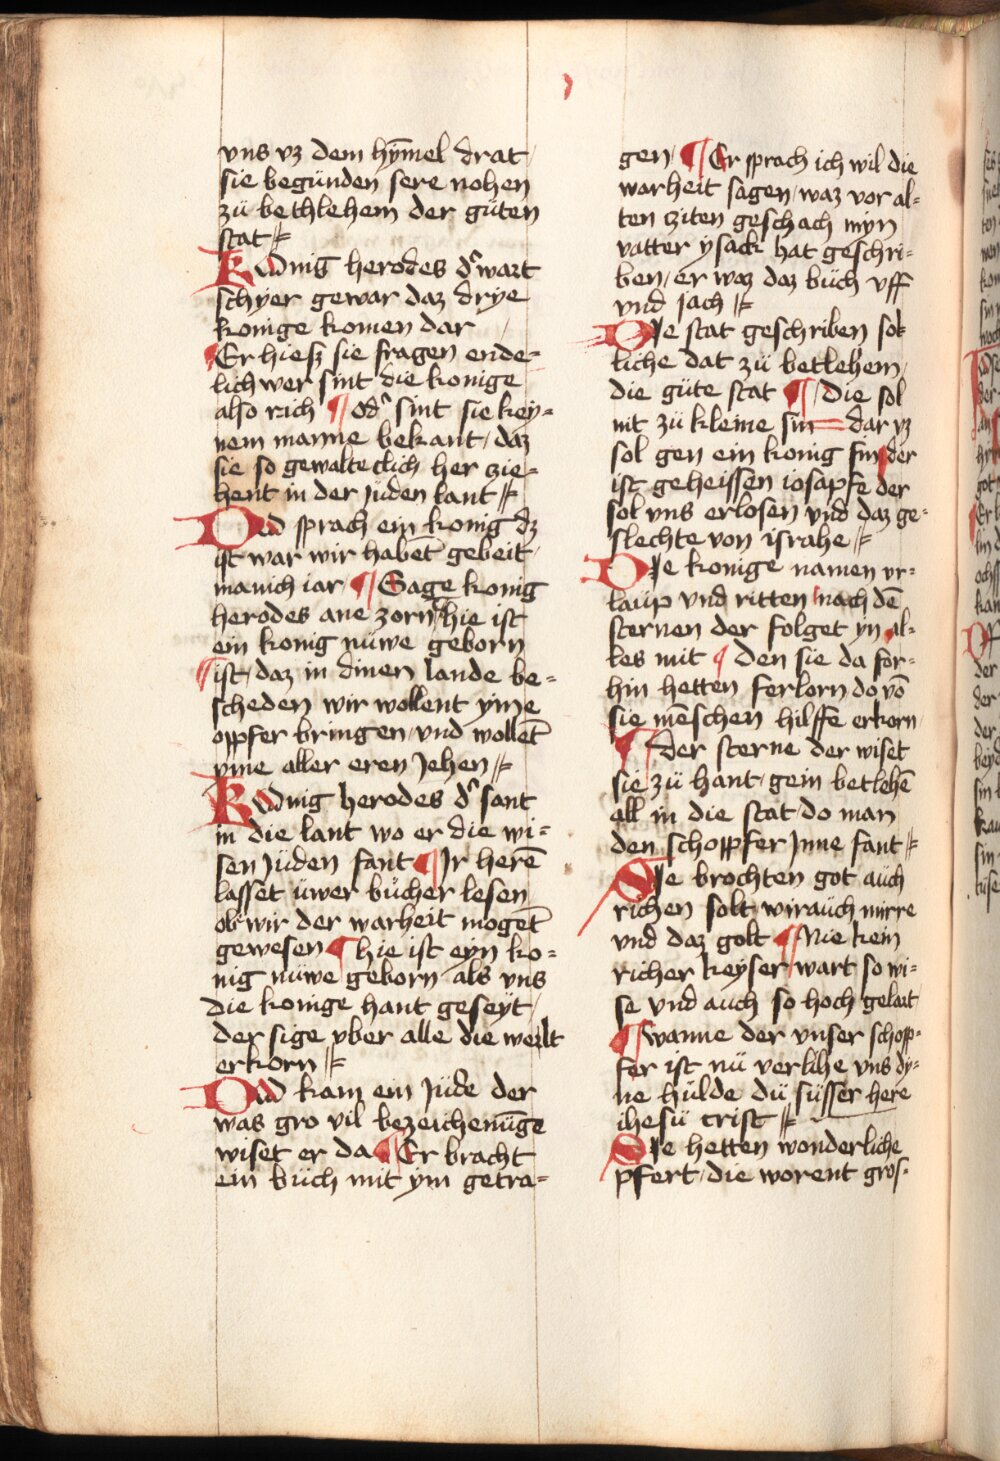 vns vz dem hȳmel drat
sie begunden sere nohen
zü bethlehem der güten
stat
Konig herodes d' wart
schyer gewar daz drye
konige komen dar
¶ Er hiesz sie fragen ende=
lich wer sint die konige
also rich ¶ od' sint sie key=
nem manne bekant / daz
sie so gewalteclich her zie=
hent in der juden lant
Do sprach ein konig dz
ist war wir habēt gebeit
manich iar ¶ Sage konig
herodes ane zorn hie ist
ein konig nüwe geborn
¶ ist / daz in dinen lande be=
scheden wir wollent yme
oppfer bringen / vnd wollēt
yme aller eren jehen
Konig herodes d' sant
in die lant wo er die wi=
sen jüden fant ¶ Ir herē
lasset üwer bücher lesen
ob wir der warheit mogēt
gewesen ¶ hie ist eyn ko=
nig nüwe geborn als vns
die konige hant geseyt /
der sige vber alle die werlt
erkorn
Do kam ein jüde der
was gro vil bezeichenūge
wiset er da ¶ Er bracht
ein büch mit ym getra=
gen ¶ Er sprach ich wil die
warheit sagen / waz vor al=
ten ziten geschach myn
vatter ysack hat geschri=
ben / er waz daz büch vff
vnd jach
Die stat geschriben sol=
liche dat zü betlehem /
die güte stat ¶ Die sol
nit zü kleine sin dar vz
sol gen ein konig sin der
ist geheissen iosapfe der
sol vns erlosen vnd daz ge=
slechte von israhe
Die konige namen vr=
laüp vnd ritten nach dē
sternen der folget yn al=
les mit ¶ den sie da for=
hin hetten ferlorn do vō
sie mēschen hilffe erkorn
¶ der sterne der wiset
sie zü hant / gein betlehē
all in die stat / do man
den schoppfer jnne fant
Sie brochten got aüch
richen solt wiraüch mirre
vnd daz golt ¶ Nie kein
richer keyser wart so wi=
se vnd auch so hoch gelart
¶ wanne der vnser schopp=
fer ist nü verlihe vns dy=
ne hülde dü süsser here
ihesü crist
Sie hetten wonderliche
pfert / die worent gros